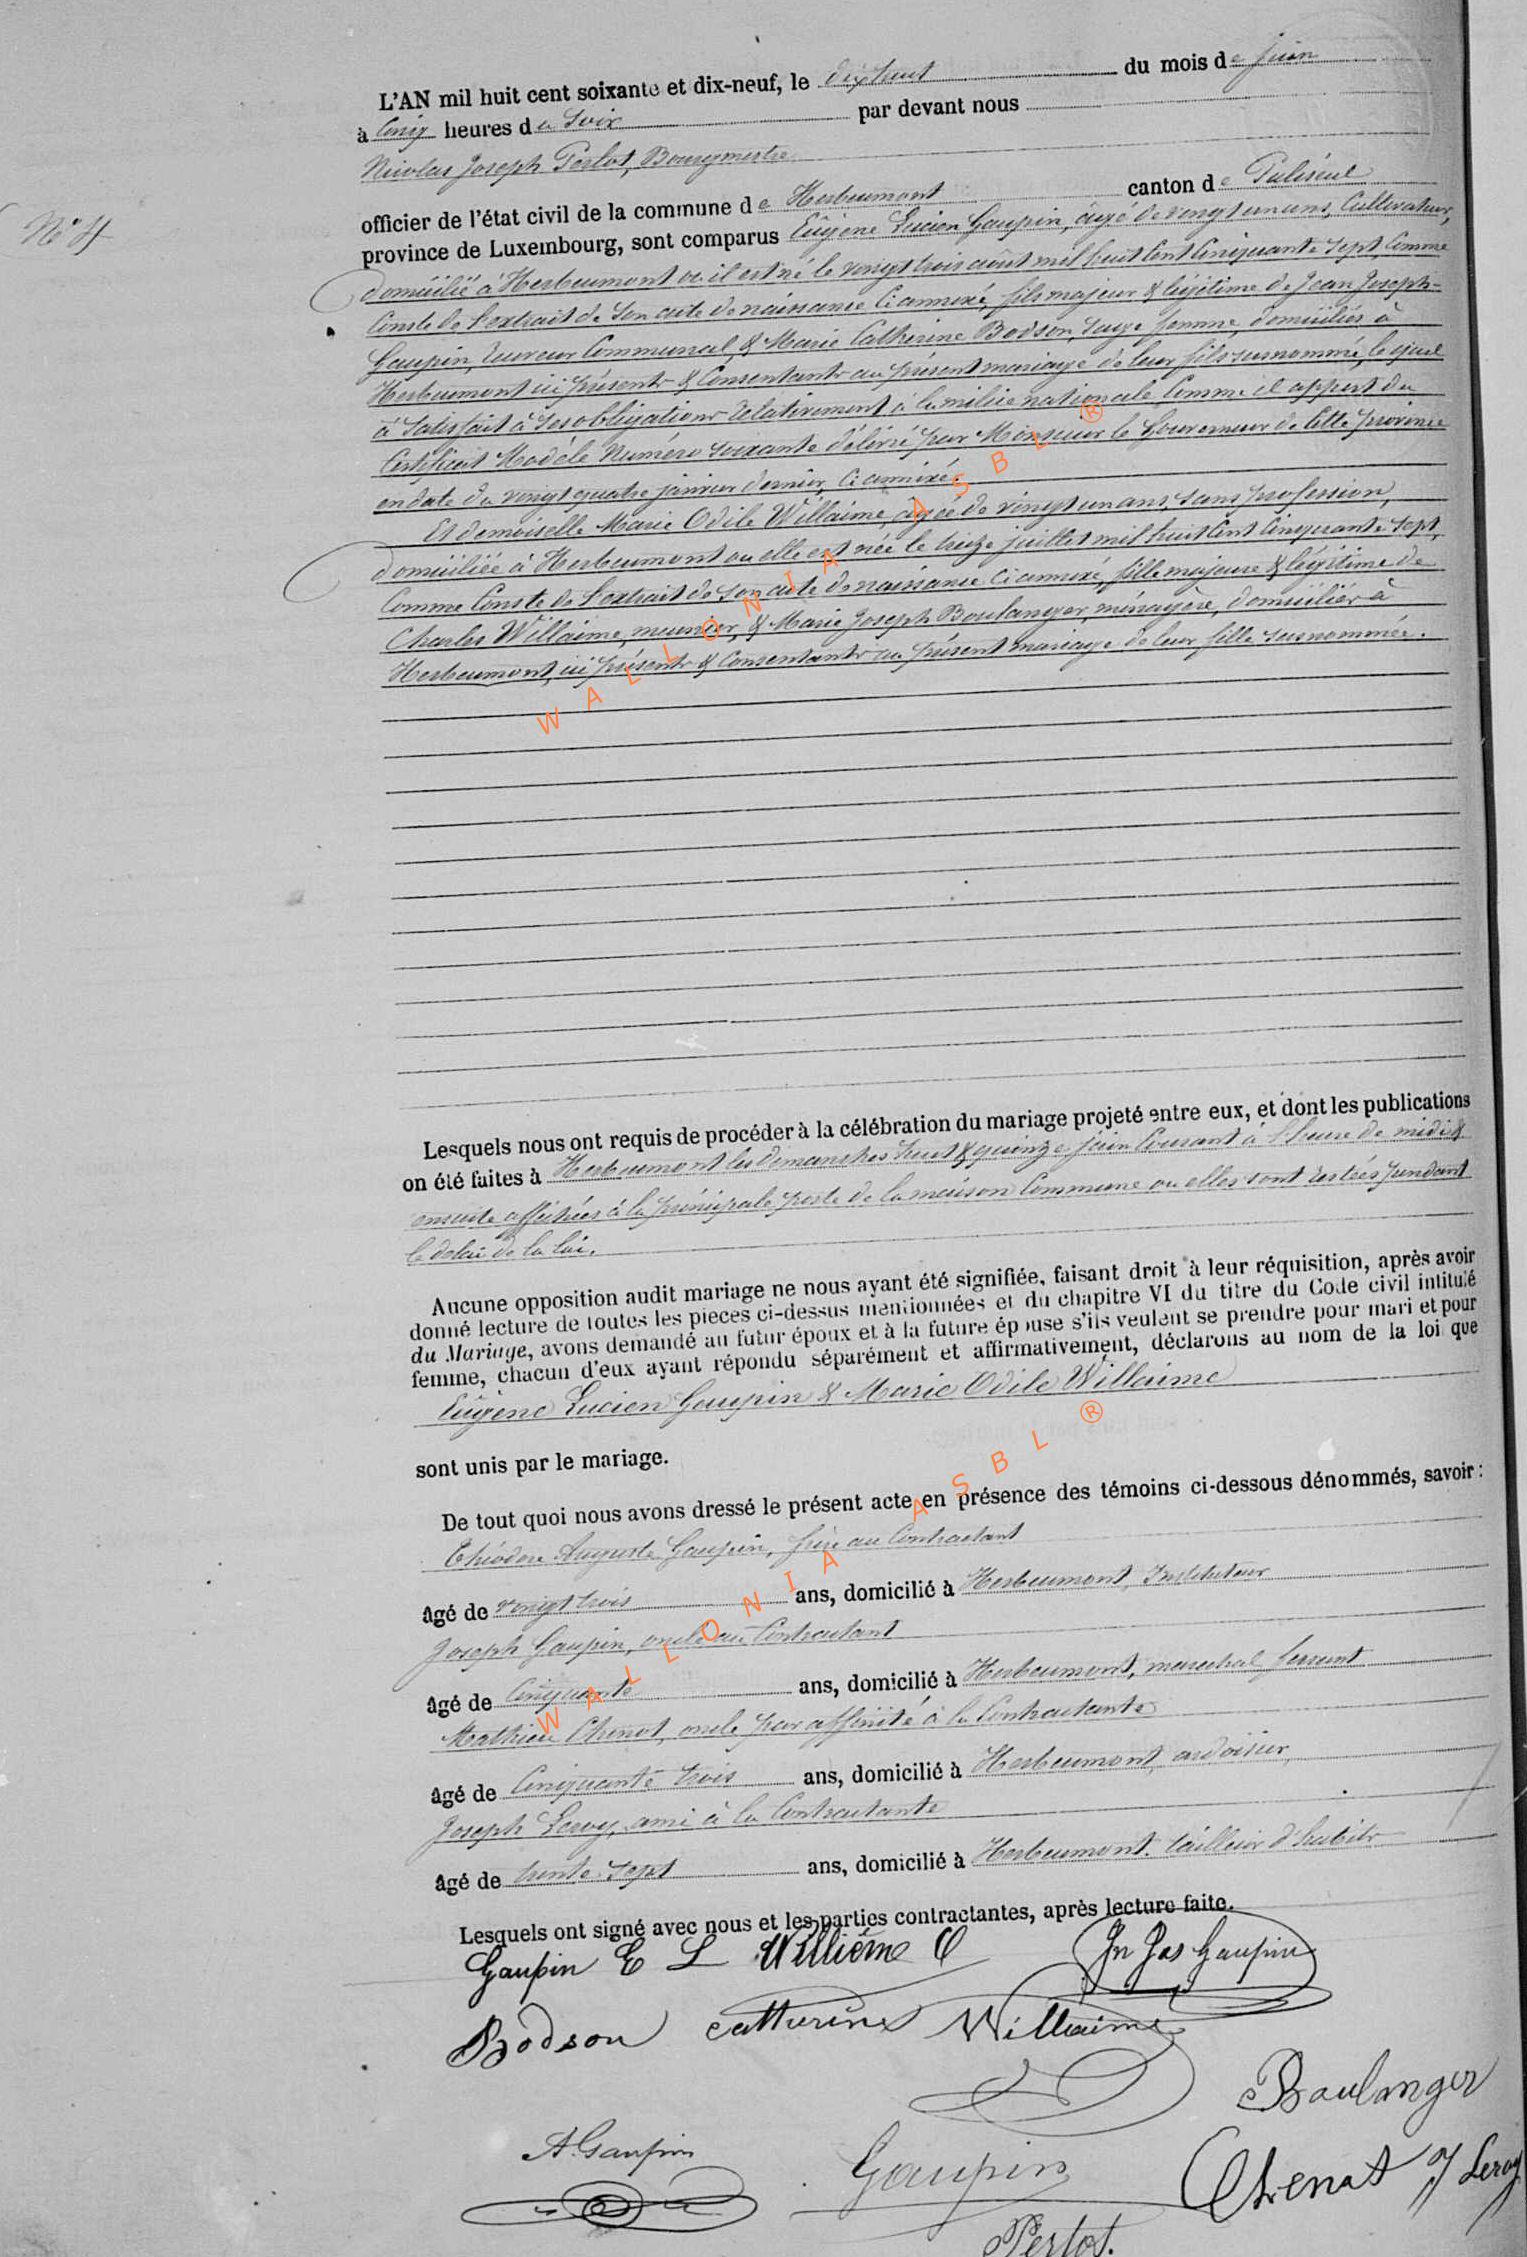 N° 4
L'AN mil huit cent soixante et dix-neuf, le dixhuit du mois de juin
à cinq heures du soir par devant nous
Nicolas Joseph Perlot, Bourgmestre
officier de l'état civil de la commune de Herbeumont canton de Paliseul
province de Luxembourg, sont comparus Eugène Lucien Gaupin, âgé de vingt un ans, cultivateur,
domicilié à Herbeumont où il est né le vingt trois août mil huit cent cinquante sept, comme
conste de l'extrait de son acte de naissance ci annexé, fils majeur & légitime de Jean Joseph
Gaupin, receveur communal, & Marie Catherine Bodson, sage femme, domiciliés à
Herbeumont ici présents & consentants au présent mariage de leur fils susnommé, lequel
à satisfait à ses obligations relativement à la milice nationale comme il appert du
certificat Modèle Numéro soixante délivré par Monsieur le Gouverneur de cette province
en date du vingt quatre janvier dernier, ci annexé.
Et demoiselle Marie Odile Willaime, âgée de vingt un ans, sans profession,
domiciliée à Herbeumont ou elle est née le treize juillet mil huit cent cinquante sept,
comme conste de l'extrait de son acte de naissance ci annexé, fille majeure & légitime de
Charles Willaime, meunier, & Marie Joseph Boulanger, ménagère, domiciliés à
Herbeumont, ici présents & consentants au présent mariage de leur fille susnommée.
Lesquels nous ont requis de procéder à la célébration du mariage projeté entre eux, et dont les publications
on été faites à Herbeumont les dimanches huit & quinze juin courant à l'heure de midi &
ensuite affichées à la principale porte de la maison commune ou elles sont restées pendant
le délai de la loi.
Aucune opposition audit mariage ne nous ayant été signifiée, faisant droit à leur réquisition, après avoir
donné lecture de toutes les pièces ci-dessus mentionnées et du chapitre VI du titre du Code civil intitulé
du Mariage, avons demandé au futur époux et à la future épouse s'ils veulent se prendre pour mari et pour
femme, chacun d'eux ayant répondu séparément et affirmativement, déclarons au nom de la loi que
Eugène Lucien Gaupin & Marie Odile Willaime
sont unis par le mariage.
De tout quoi nous avons dressé le présent acte en présence des témoins ci-dessous dénommés, savoir :
Théodore Auguste Gaupin, frère au contractant
âgé de vingt trois ans, domicilié à Herbeumont, Instituteur
Joseph Gaupin, oncle au contractant
âgé de cinquante ans, domicilié à Herbeumont, marechal ferrant
Mathieu Chenot, oncle par affinité à la contractante
âgé de cinquante trois ans, domicilié à Herbeumont, ardoisier,
Joseph Leroy, ami à la contractante
âgé de trente sept ans, domicilié à Herbeumont, tailleur d'habits
Lesquels ont signé avec nous et les parties contractantes, après lecture faite.
Gaupin E L Willième O Jn Jos Gaupin
Bodson Catherine Willaime
Boulanger
A. Gaupin Gaupin Chenot J Leroy
Perlot.
WALLONIA ASBL ®
WALLONIA ASBL ®